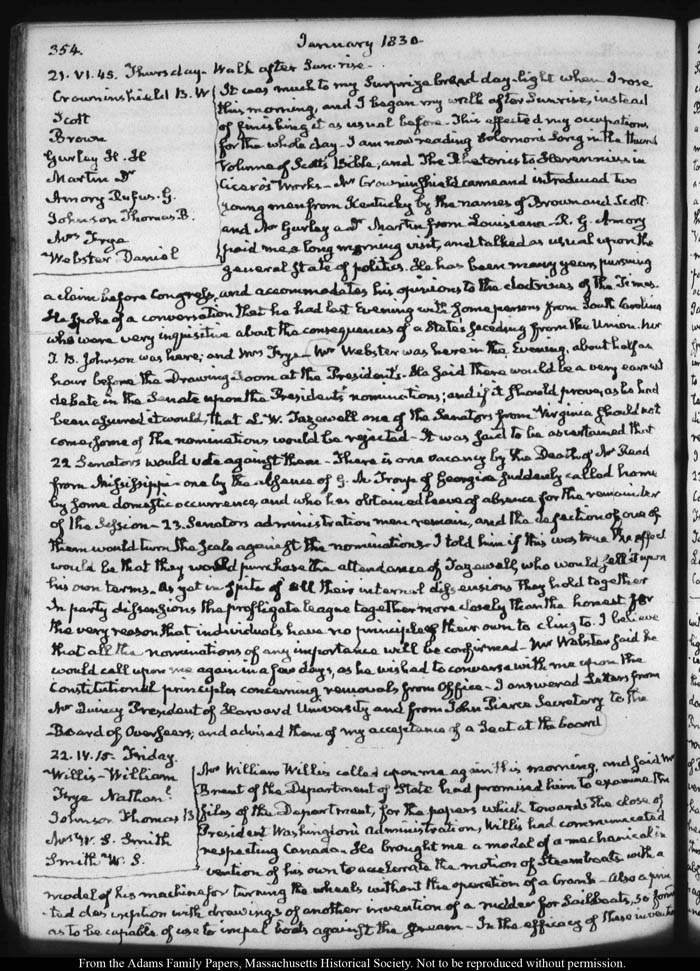 354.
January 1830
21. VI. 45. Thursday. Walk after Sun-rise.
Crowninshield B. W
Scott
Brown
Gurley H. H
Martin Dr
Amory Rufus. G.
Johnson Thomas B.
Mrs Frye
Webster Daniel
It was much to my Surprize broad day-light when I rose
this morning, and I began my walk after Sunrise, instead
of finishing it as usual before. This effected my occupations
for the whole day. I am now reading Solomon's Song in the third
Volume of Scott's Bible, and The Rhetorics to Herennius in
Cicero's Works. Mr Crowninshield came and introduced two
young men from Kentucky by the names of Brown and Scott
and Mr Gurley a Dr Martin from Louisiana. R. G. Amory
paid me a long morning visit, and talked as usual upon the
general State of politics. He has been many years pursuing
a claim before Congress, and accommodates his opinions to the doctrines of the Times.
He spoke of a conversation that he had last Evening with some persons from South Carolina
who were very inquisitive about the consequences of a State's seceding from the Union. Mr
T. B. Johnson was here; and Mrs Frye. Mr Webster was here in the Evening, about half an
hour before the Drawing Room at the President's. He said there would be a very earnest
debate in the Senate upon the President's nominations; and if it should prove, as he had
been assured it would, that L. W. Tazewell one of the Senators from Virginia should not
come, some of the nominations would be rejected. It was said to be ascertained that
22 Senators would vote against them. There is one vacancy by the Death of Mr Read
from Mississippi. one by the absence of G. M. Troup of Georgia suddenly called home
by some domestic occurrence, and who has obtained leave of absence for the remainder
of the Session. 23. Senators administration men remain, and the defection of one of
them would turn the scale against the nominations. I told him if this was true the effect
would be that they would purchase the attendance of Tazewell, who would sell it upon
his own terms. As yet in spite of all their internal dissensions they hold together
In party dissensions the profligate league together more closely than the honest, for
the very reason that individuals have no principles of their own to cling to. I believe
that all the nominations of any importance will be confirmed. Mr Webster said he
would call upon me again in a few days, as he wished to converse with me upon the
Constitutional principles concerning removals from Office. I answered Letters from
Mr Quincy President of Harvard University and from John Pierce Secretary to the
Board of Overseers; and advised them of my acceptance of a Seat at the board
22. IV. 15. Friday.
Willis-William
Frye Nathanl
Johnson Thomas B
Mrs W. S. Smith
Smith W. S.
Mr William Willis called upon me again this morning, and said Mr
Brent of the Department of State had promised him to examine the
files of the Department, for the papers which towards the close of
President Washington's administration, Willis had communicated
respecting Canada. He brought me a model of a mechanical in
vention of his own to accelerate the motion of Steamboats with a
model of his machine for turning the wheels without the operation of a Crank. Also a prin
-ted description with drawings of another invention of a rudder for Sailboats, so formed
as to be capable of use to impel boats against the stream. In the efficacy of these inventions
From the Adams Family Papers, Massachusetts Historical Society. Not to be reproduced without permission.